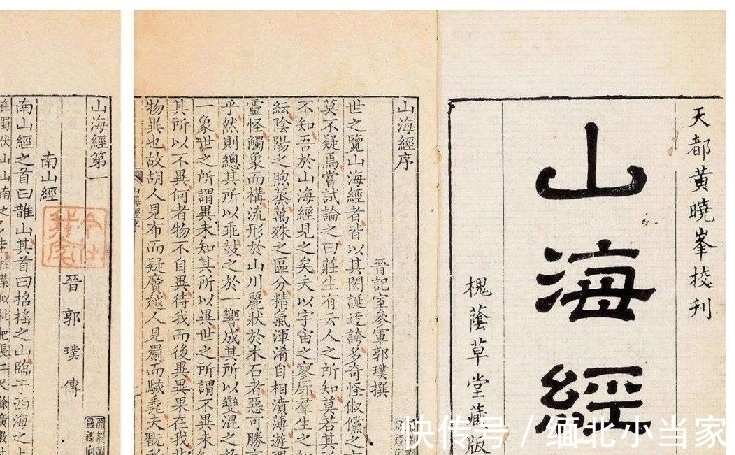 天都黄曉峯挍刊
山海經
槐蔭草堂藏版
山海經序
晉記室參軍郭璞撰
世之覽山海經者皆以其閎誕迂誇多奇怪俶儻之
莫不疑焉嘗試論之曰莊生有云人之所知莫若其
不知吾於山海經見之矣夫以宇宙之寥廓羣生之
紜陰陽之煦蒸萬殊之區分精氣渾淆自相濆薄遊
靈怪觸象而構流形於山川麗狀於木石者惡可勝
乎然則總其所以乖鼓之於一響成其所以變混之
一象世之所謂異未知其所以異世之所謂不異未
其所以不異何者物不自異待我而後異異果在我
物異也故胡人見布而疑黂越人見罽而駭毳夫翫
山海經第一
晉郭璞傳
南山經
南山經之首曰䧿山其首曰招搖之山臨于西海之
快传号/缅北小当家